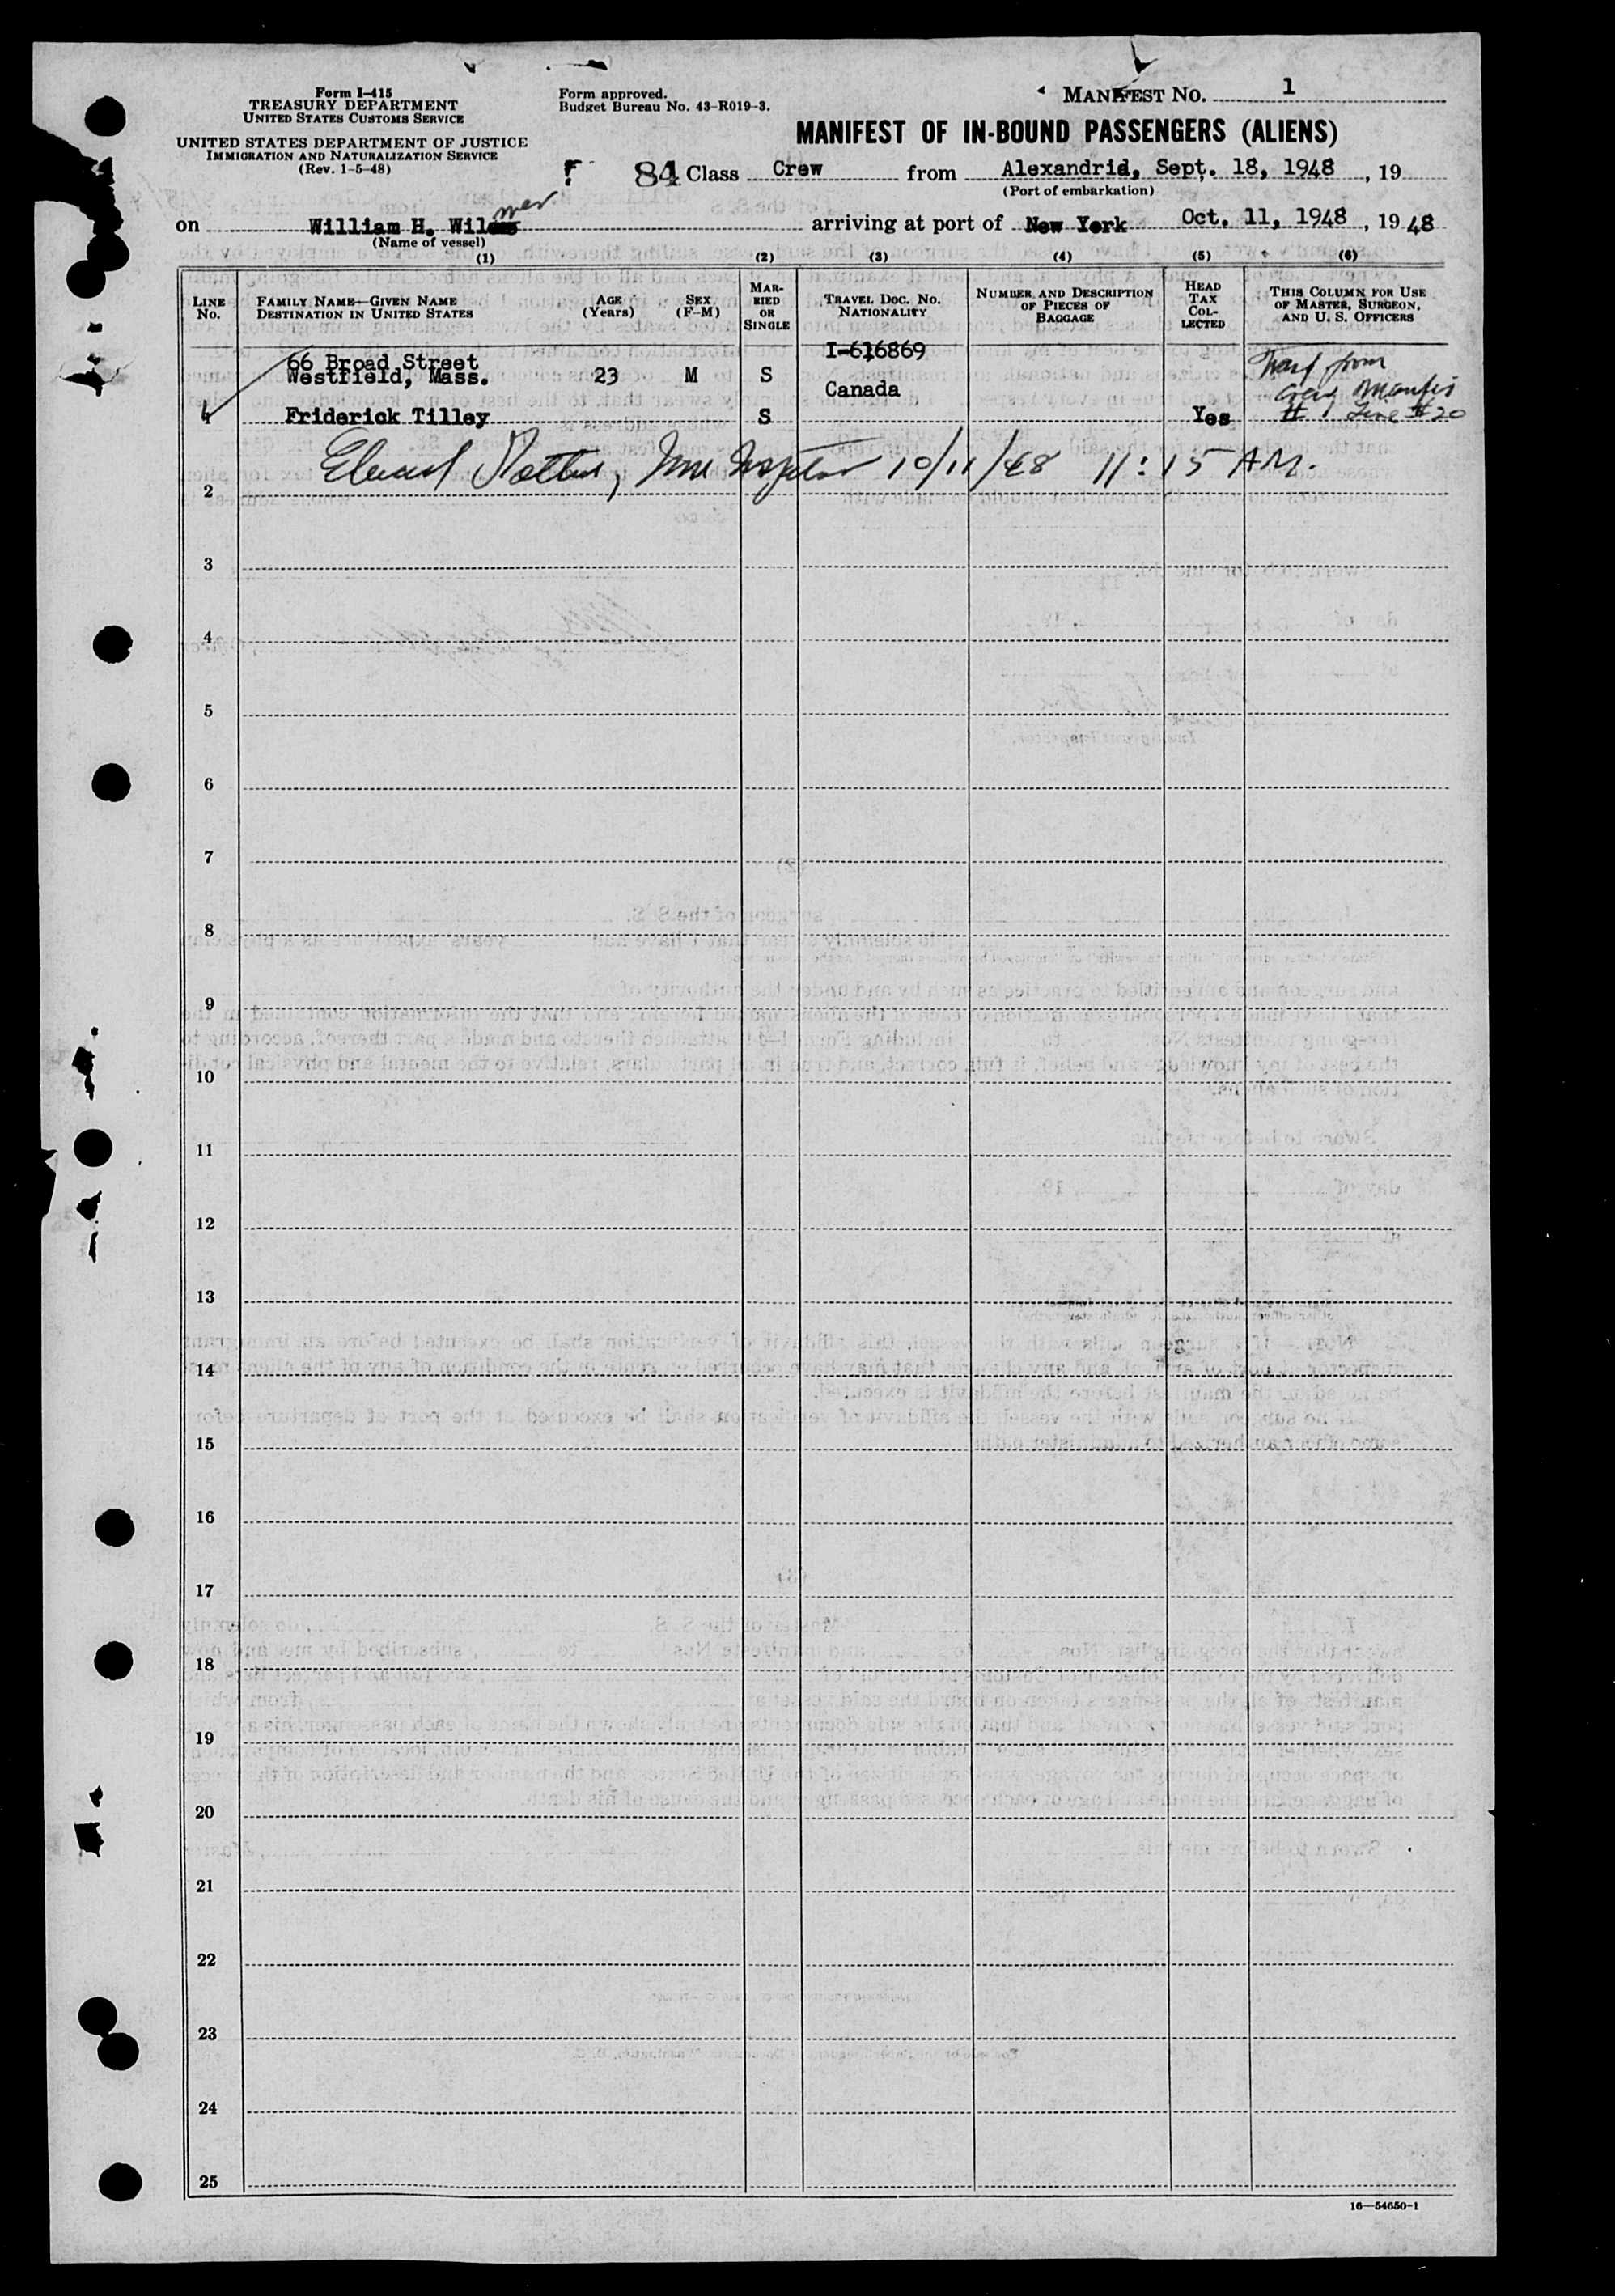 Form I-415
TREASURY DEPARTMENT
UNITED STATES CUSTOMS SERVICE
UNITED STATES DEPARTMENT OF JUSTICE
IMMIGRATION AND NATURALIZATION SERVICE
(Rev. 1-5-48)
Form approved.
Budget Bureau No. 43-R019-3.
MANIFEST NO. 1
MANIFEST OF IN-BOUND PASSENGERS (ALIENS)
84 Class Crew from Alexandria, Sept. 18, 1948, 19
(Port of embarkation)
on William H. Wil mer arriving at port of New York Oct. 11, 1948, 1948
(Name of vessel)
(1) (2) (3) (4) (5) (6)
LINE No. FAMILY NAME—GIVEN NAME DESTINATION IN UNITED STATES AGE (Years) SEX (F-M) MARRIED OR SINGLE TRAVEL DOC. NO. NATIONALITY NUMBER AND DESCRIPTION OF PIECES OF BAGGAGE HEAD TAX COLLECTED THIS COLUMN FOR USE OF MASTER, SURGEON, AND U. S. OFFICERS
66 Broad Street I-616869
Westfield, Mass. 23 M S Canada from
Friderick Tilley S Yes # 1 Line #20
Edward 10/11/48 11:15 AM.
2
3
4
5
6
7
8
9
10
11
12
13
14
15
16
17
18
19
20
21
22
23
24
25
16—54650-1